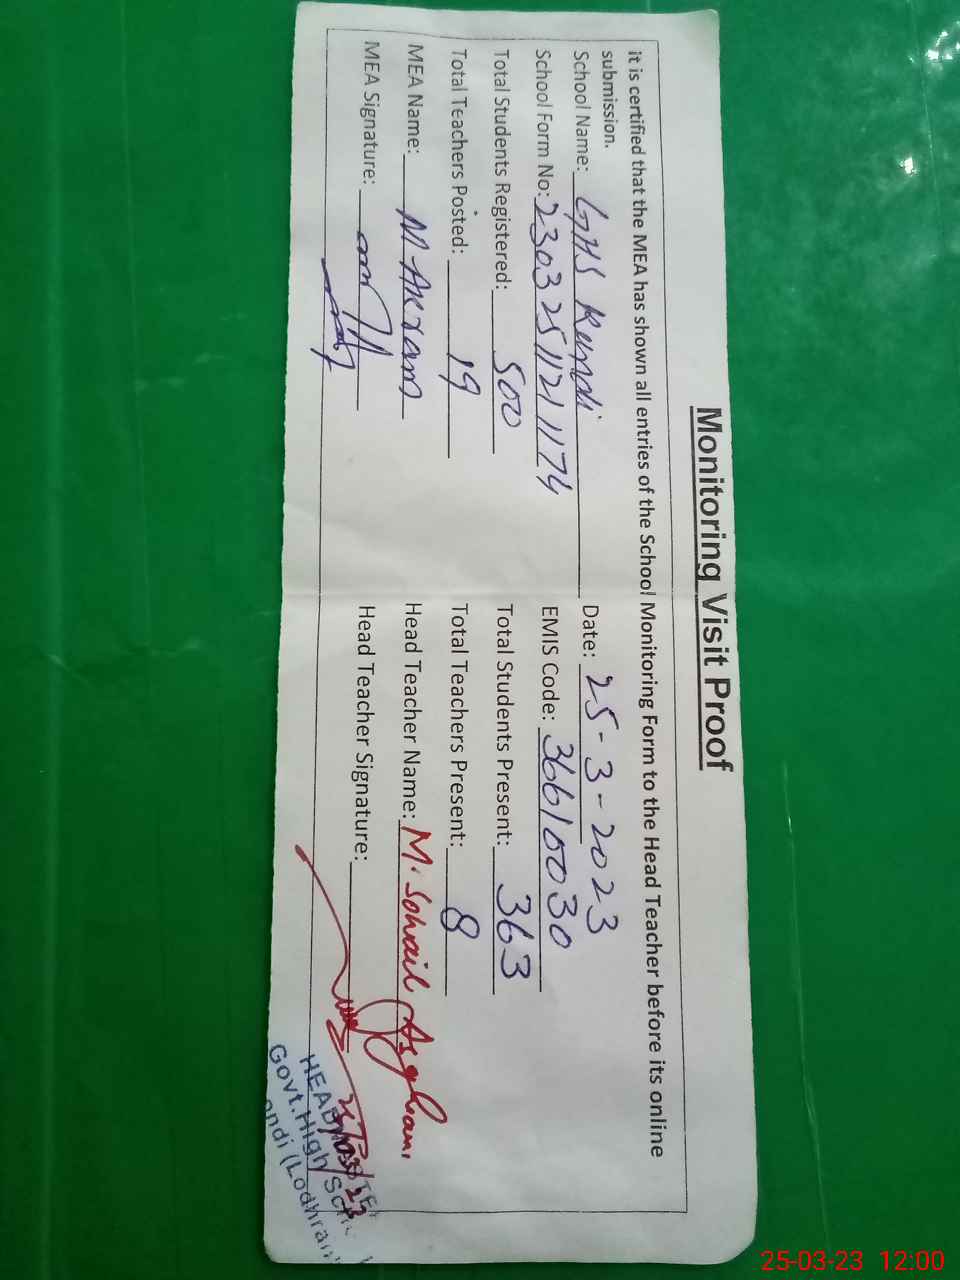 Monitoring Visit Proof
it is certified that the MEA has shown all entries of the School Monitoring Form to the Head Teacher before its online
submission.
School Name: GHS Rendi Date: 25-3-2023
School Form No: 230325112121174 EMIS Code: 36610030
Total Students Registered: 500 Total Students Present: 363
Total Teachers Posted: 19 Total Teachers Present: 8
MEA Name: M Akram Head Teacher Name: M. Sohail Asghar
MEA Signature: Head Teacher Signature:
25/03/23
HEADMASTER
Govt. High School
ondi (Lodhran
25-03-23 12:00